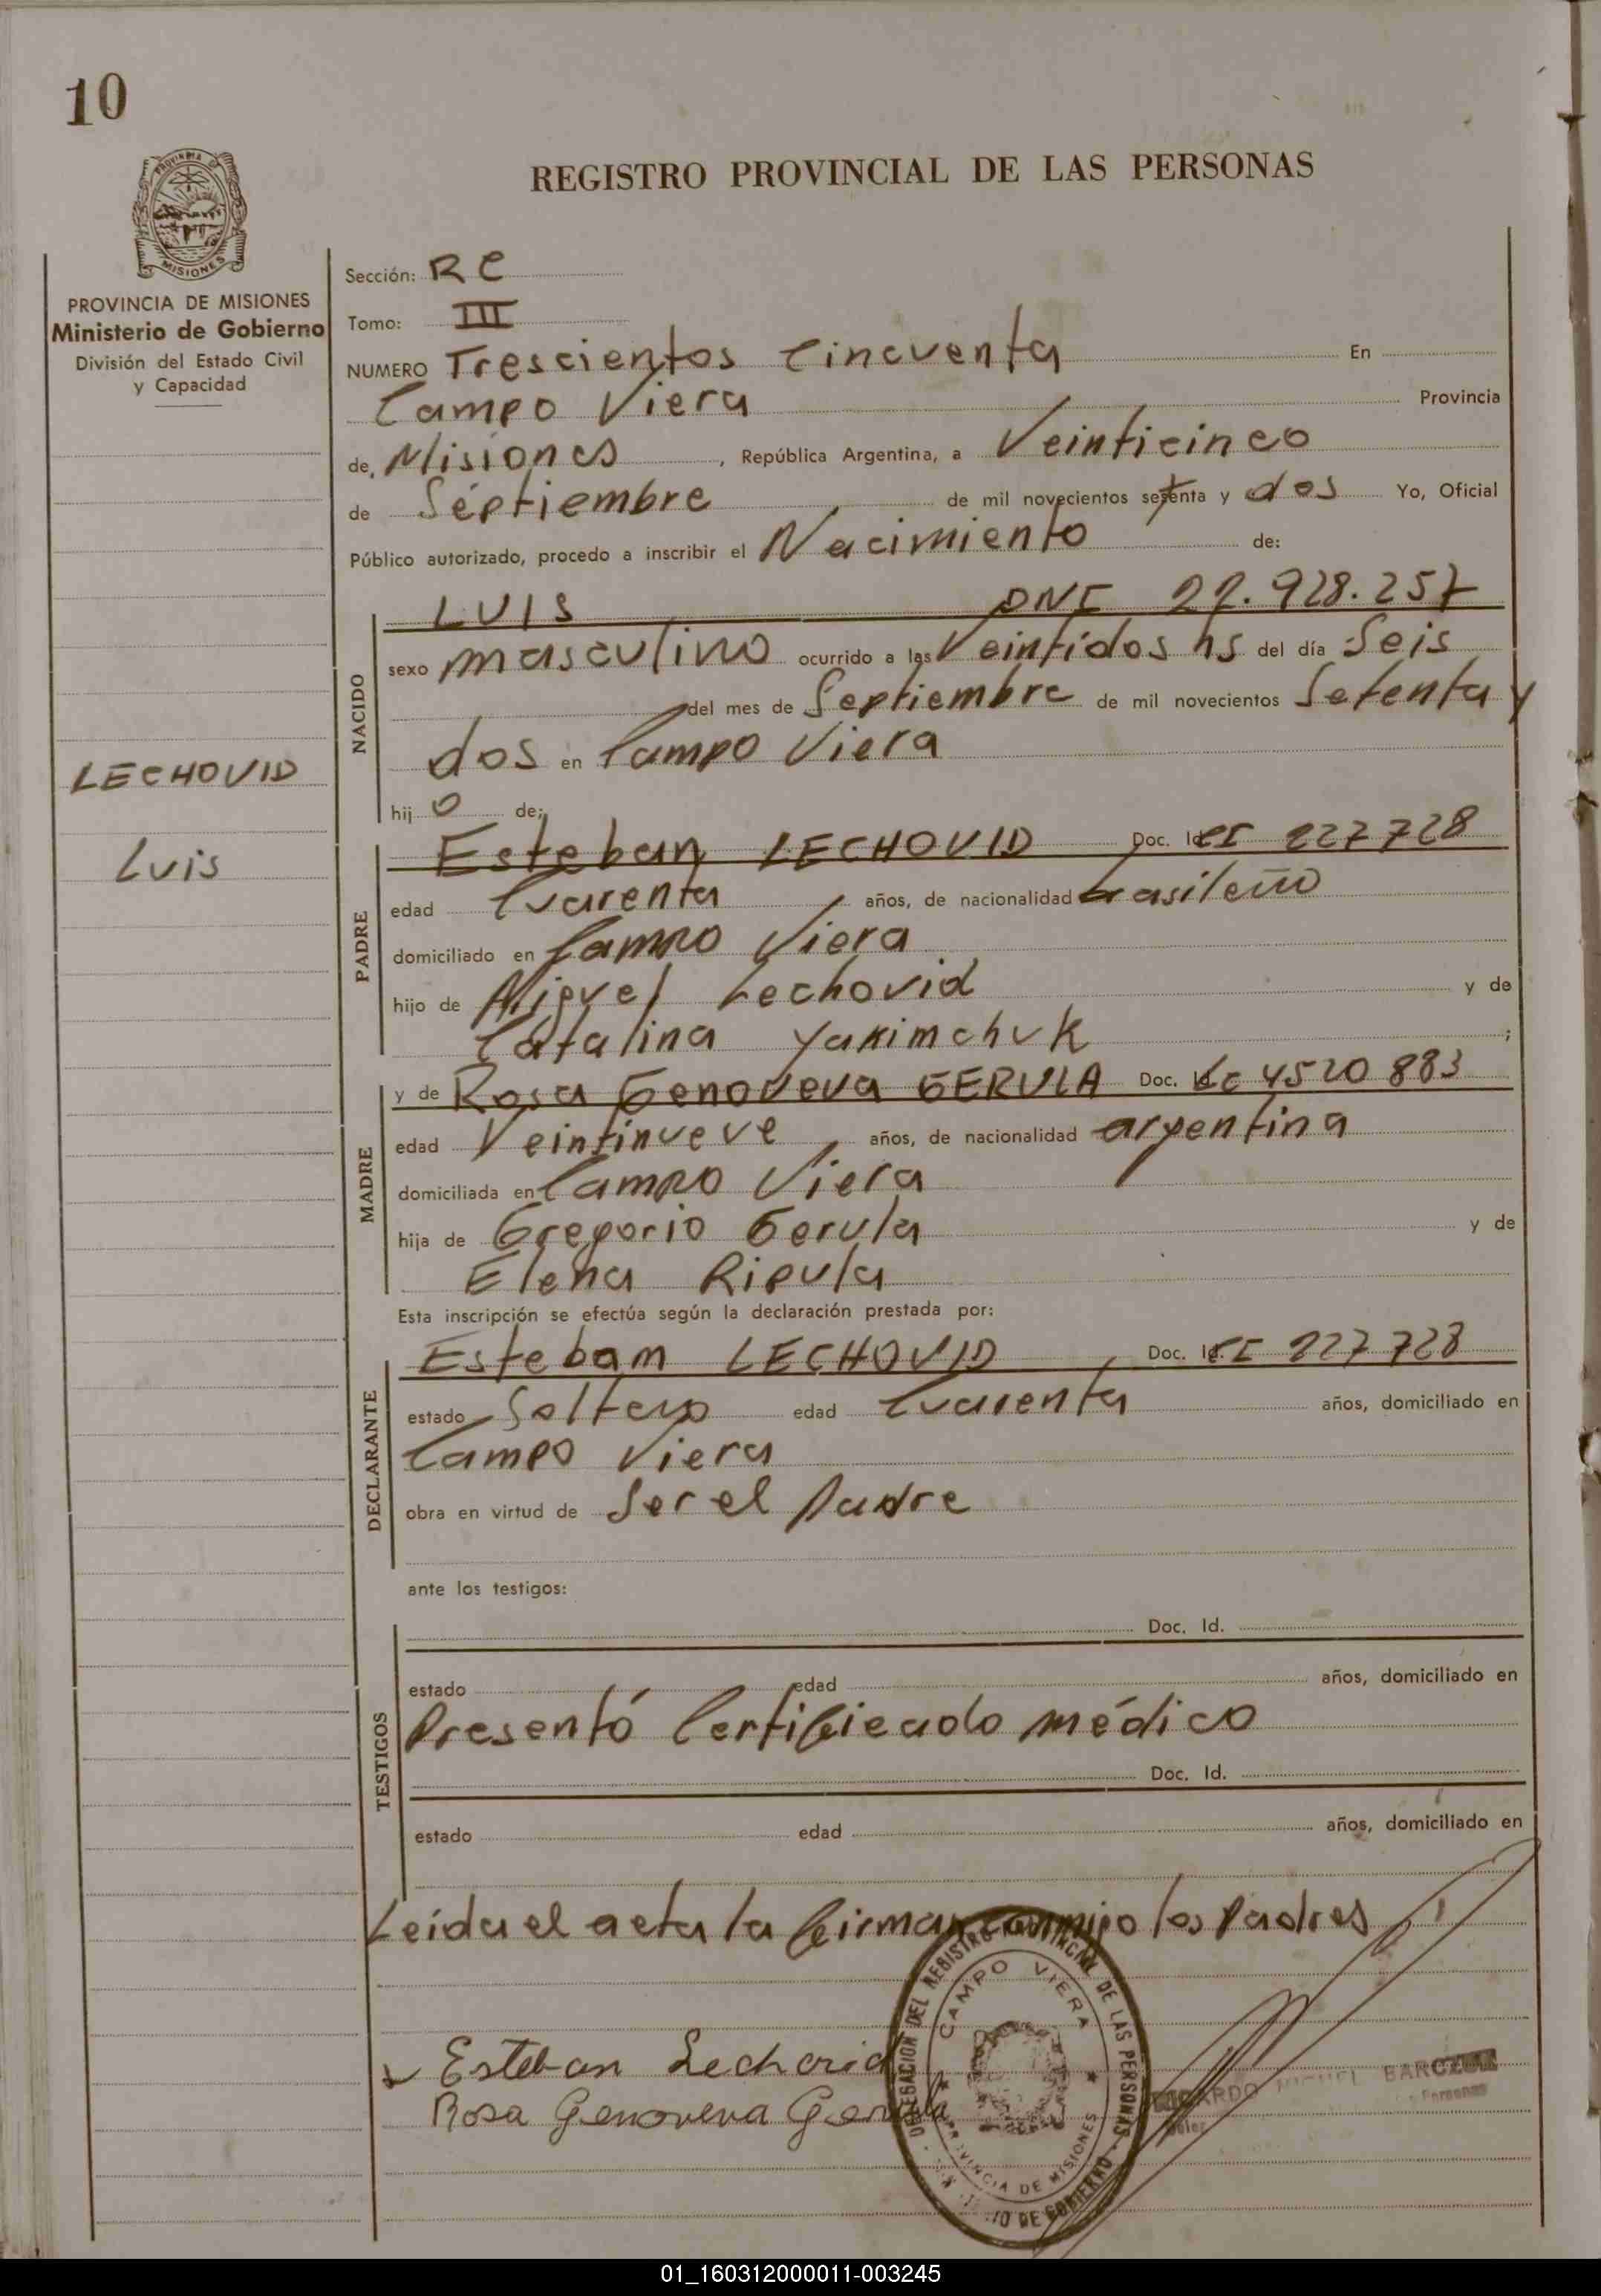 10
REGISTRO PROVINCIAL DE LAS PERSONAS
PROVINCIA DE MISIONES
Ministerio de Gobierno
División del Estado Civil
y Capacidad
Sección: RC
Tomo: III
NUMERO Trescientos Cincuenta En
Campo Viera Provincia
de Misiones, República Argentina, a Veinticinco
de Séptiembre de mil novecientos setenta y dos Yo, Oficial
Público autorizado, procedo a inscribir el Nacimiento de:
LECHOVID
Luis
NACIDO
LUIS DNI 22.928.257
sexo masculino ocurrido a las Veintidos hs del día Seis
del mes de Septiembre de mil novecientos Setenta y
dos en Campo Viera
hijo de;
PADRE
Esteban LECHOVID Doc. Id. CI 227728
edad Cuarenta años, de nacionalidad brasileño
domiciliado en Campo Viera
hijo de Miguel Lechovid y de
Catalina Yakimchuk ;
MADRE
y de Rosa Genoveva GERULA Doc. Id. LC 4520883
edad Veintinueve años, de nacionalidad argentina
domiciliada en Campo Viera
hija de Gregorio Gerula y de
Elena Ripula
Esta inscripción se efectúa según la declaración prestada por:
DECLARANTE
Esteban LECHOVID, Doc. Id. CI 227728
estado Soltero edad Cuarenta años, domiciliado en
Campo Viera
obra en virtud de Ser el Padre
ante los testigos:
TESTIGOS
Doc. Id.
estado edad años, domiciliado en
Presentó Certificado médico
Doc. Id.
estado edad años, domiciliado en
Leída el acta la firman conmigo los Padres
Esteban Lechovid
Rosa Genoveva Gerula
DELEGACION DEL REGISTRO PROVINCIAL DE LAS PERSONAS
CAMPO VIERA
PROVINCIA DE MISIONES
DE GOBIERNO
MIGUEL
01_160312000011-003245